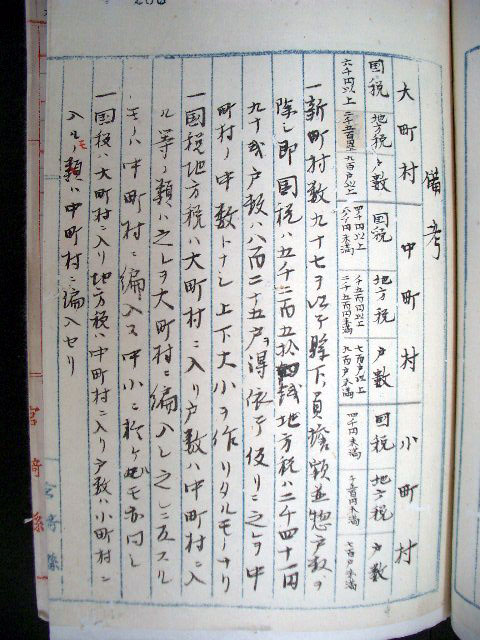 備考
大町村
国税 六千円以上
地方税 二千五百円以上
戸数 九百戸以上
中町村
国税 四千円以上 六千円未満
地方税 千五百円以上 二千五百円未満
戸数 七百戸以上 九百戸未満
小町村
国税 四千円未満
地方税 千五百円未満
戸数 七百戸未満
一新町村数九十七ヲ以テ県下ノ負担額並惣戸数ヲ
除シ即国税ハ五千二百五拾四銭地方税ハ二千四十一円
九十銭戸数ハ八百二十五戸ヲ得依テ仮リニ之レヲ中
町村ノ中数トナシ上下大小ヲ作リタルモノナリ
一国税地方税ハ大町村ニ入リ戸数ハ中町村ニ入
ル等ノ類ハ之レヲ大町村ニ編入シ之レニ反スル
モノハ中町村ニ編入ス中小ニ於ケルモ亦同シ
一国税ハ大町村ニ入リ地方税ハ中町村ニ入リ戸数ハ小町村ニ
入ルモノノ類ハ中町村ニ編入セリ
宮崎県